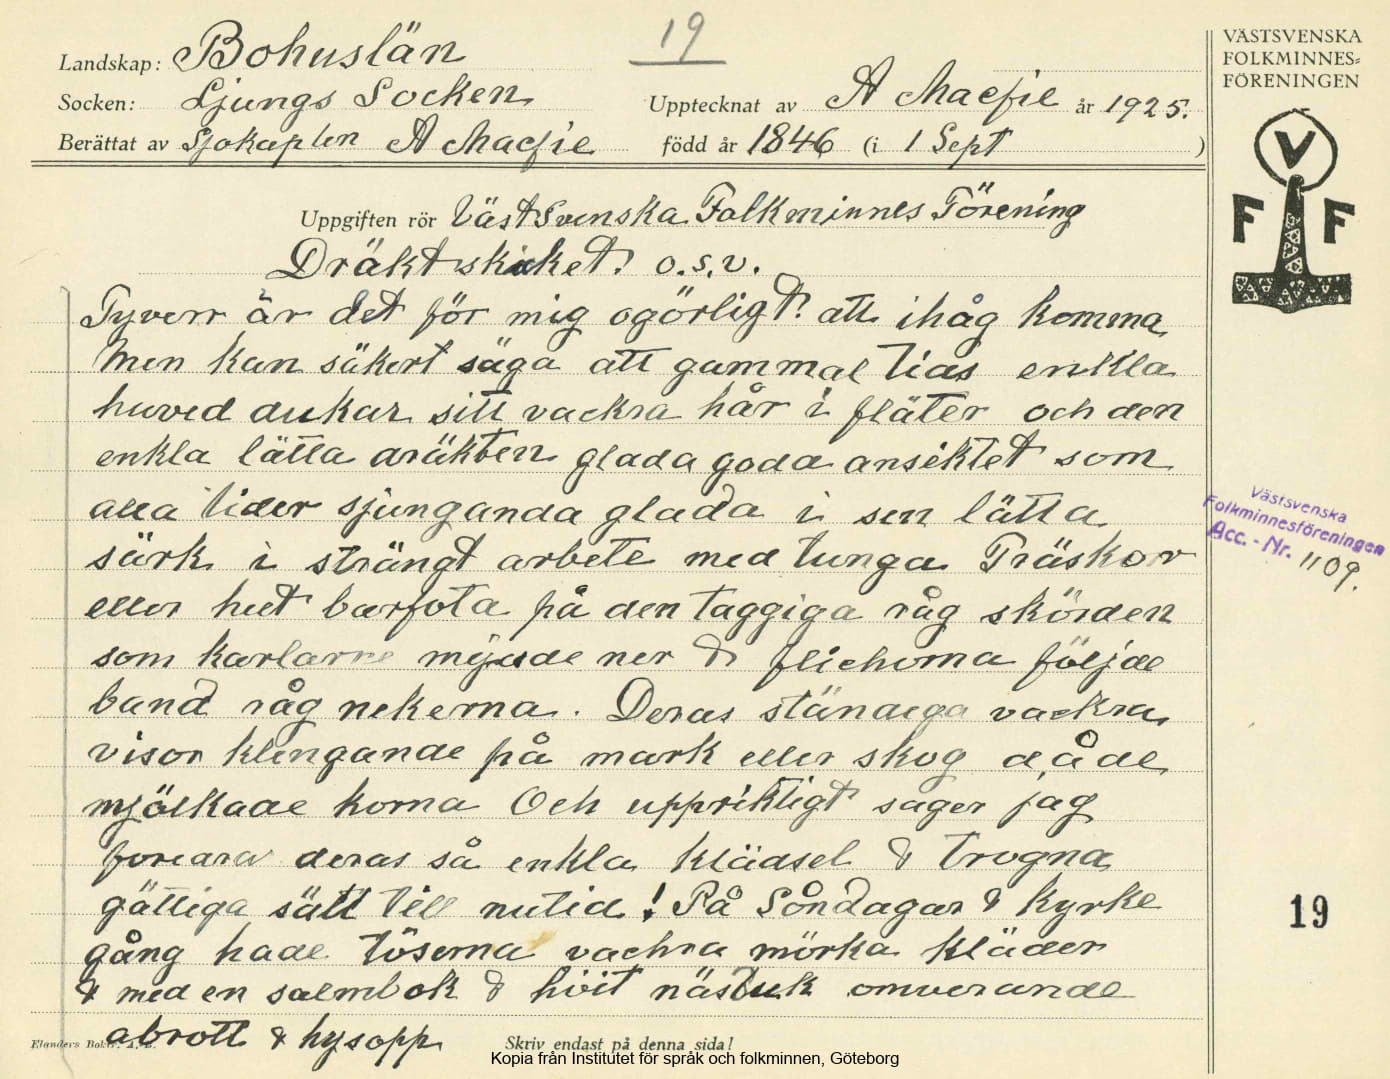 19
Landskap: Bohuslän
Socken: Ljungs Socken
Upptecknat av A Macfie år 1925.
Berättat av Sjökapten A Macfie
född år 1846 (i 1 Sept )
VÄSTSVENSKA
FOLKMINNES=
FÖRENINGEN
V
F F
Uppgiften rör Västsvenska Folkminnes Förening
Dräktskicket. o.s.v.
Tyverr är det för mig ogörligt att ihåg komma
Men kan säkert säga att gammal tids enkla
huvud dukar sitt vackra hår i fläter och den
enkla lätta dräkten glada goda ansiktet som
alla tider sjunganda glada i sen lätta
särk i strängt arbete med tunga Träskor
eller helt barfota på den taggiga råg skörden
som karlarne mejade ner & flickorna följde
band råg nekerna. Deras ständiga vackra
visor klingande på mark eller skog då de
mjölkade korna Och uppriktigt sager jag
deras så enkla klädsel & trogna
sätt till nutid! På Söndagar & kyrke
gång hade töserna vackra mörka kläder
& med en salmbok & hvit näsduk omverande
abrott & hysopp
Västsvenska
Folkminnesföreningen
Acc.-Nr. 1109.
19
Elanders Boktr. A. B.
Skriv endast på denna sida!
Kopia från Institutet för språk och folkminnen, Göteborg